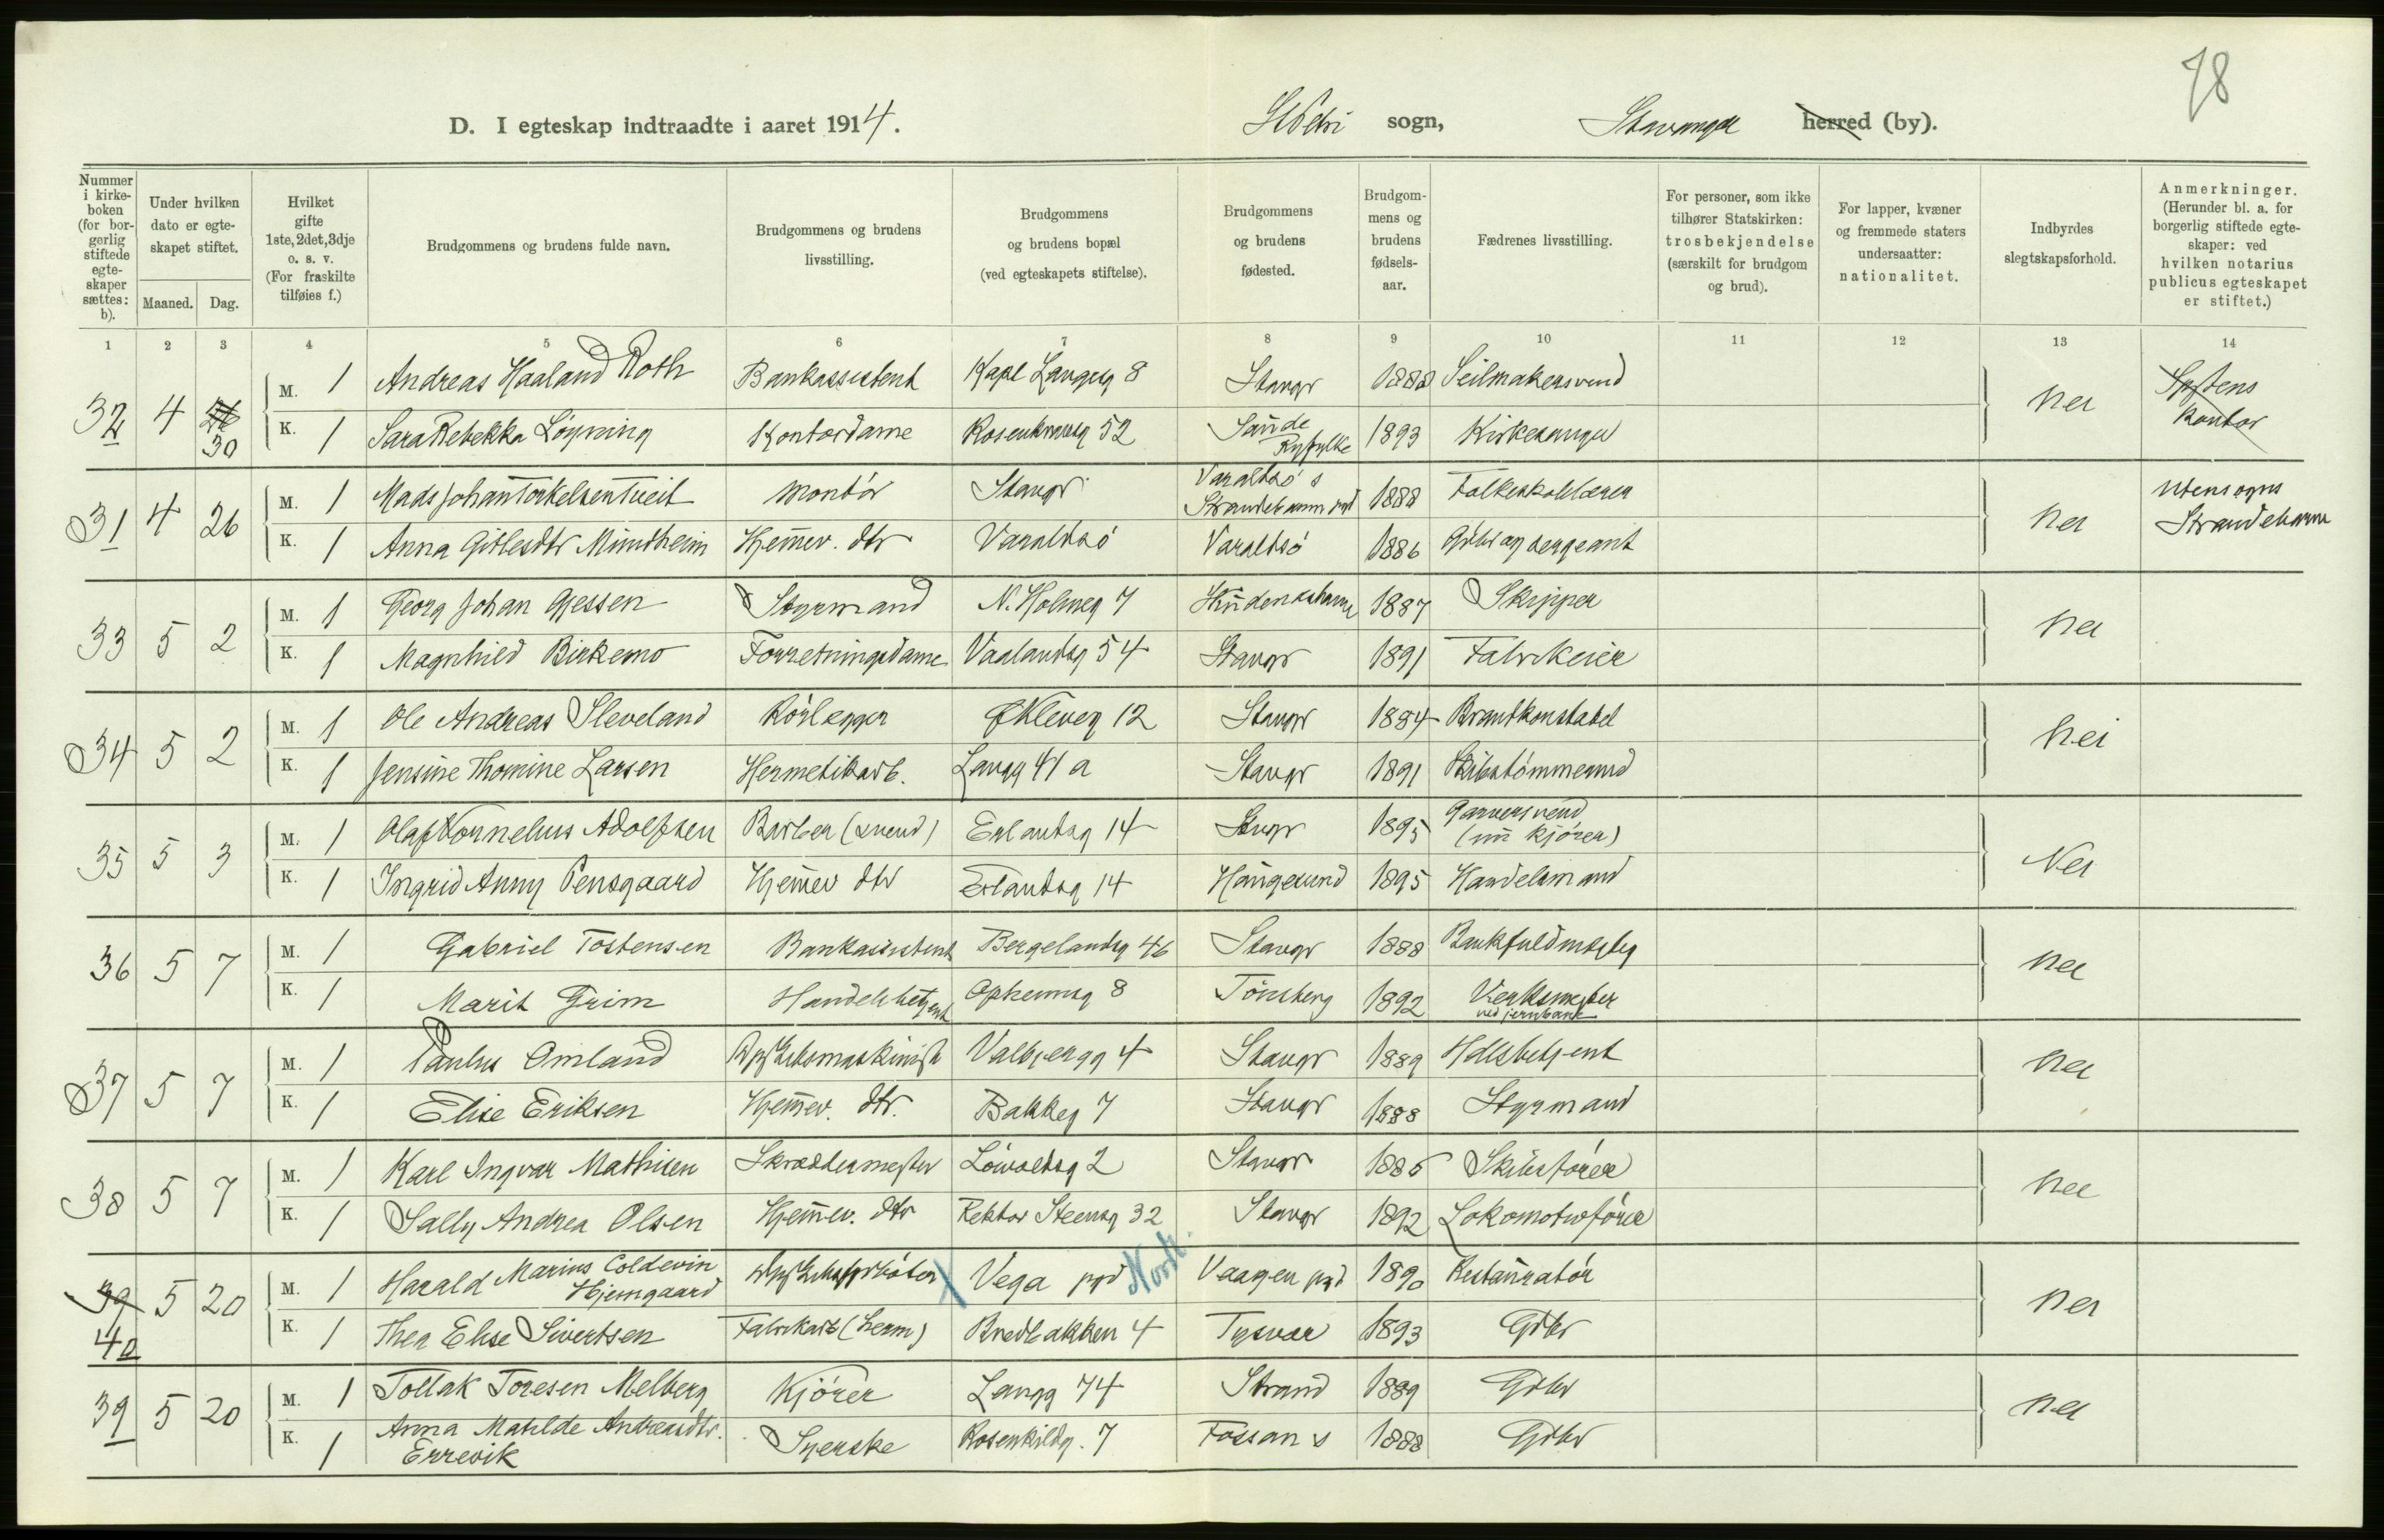 78
D. I egteskap indtraadte i aaret 1914. sogn, Stavanger herred (by).
Nummer i kirkeboken (for borgerlig stiftede egteskaper sættes: b).
Under hvilken dato er egteskapet stiftet.
Maaned. Dag.
Hvilket gifte 1ste, 2det, 3dje o. s. v. (For fraskilte tilføies f.)
Brudgommens og brudens fulde navn.
Brudgommens og brudens livsstilling.
Brudgommens og brudens bopæl (ved egteskapets stiftelse).
Brudgommens og brudens fødested.
Brudgommens og brudens fødselsaar.
Fædrenes livsstilling.
For personer, som ikke tilhører Statskirken: trosbekjendelse (særskilt for brudgom og brud).
For lapper, kvæner og fremmede staters undersaatter: nationalitet.
Indbyrdes slegtskapsforhold.
Anmerkninger. (Herunder bl. a. for borgerlig stiftede egteskaper: ved hvilken notarius publicus egteskapet er stiftet.)
1 2 3 4 5 6 7 8 9 10 11 12 13 14
32 4 26 30 M. 1 Andreas Haaland Roth Bankassistent Kapl Langeg 8 Stavgr 1888 Seilmakersvend nei Kontor
K. 1 Sara Rebekka Løyning Kontordame Rosenkransg 52 Sande Ryfylke 1893 Kirkesanger
31 4 26 M. 1 Mads Johan Torkelsen Tveit Montör Stavgr Varaldsö s Strandebarm pgd 1888 Folkeskolelærer nei Utensogns Strandebarm
K. 1 Anna Gitlesdtr Mundheim Hjemmev. dtr Varaldsö Varaldsö 1886 Gdbr og sergeant
33 5 2 M. 1 Georg Johan Gjessen Styrmand N. Holmeg 7 Skudeneshavn 1887 Skipper nei
K. 1 Magnhild Birkemo Forretningsdame Vaalandsg 54 Stavgr 1891 Fabrikeier
34 5 2 M. 1 Ole Andreas Sleveland Rörlægger Ø Kleveg 12 Stavgr 1884 Brandkonstabel nei
K. 1 Jensine Thomine Larsen Hermetikarb. Langg 41 a Stavgr 1891 Skibstömmermd
35 5 3 M. 1 Olaf Kornelius Adolfsen Barber (svend) Erlandsg 14 Stvgr 1895 Garversvend (nu kjörer) Nei
K. 1 Ingrid Anny Pensgaard Hjemmev dtr Erlandsg 14 Haugesund 1895 Handelsmand
36 5 7 M. 1 Gabriel Tostensen Bankassistent Bergelandsg 46 Stavgr 1888 Bankfuldmegtig nei
K. 1 Marit Grim Handelsbetjent Opheimsg 8 Tönsberg 1892 Verksmester ved jernbane
37 5 7 M. 1 Paulus Omland Dpskibsmaskinist Valbjergg 4 Stavgr 1889 Hdlsbetjent nei
K. 1 Elise Eriksen Hjemmev. dtr. Bakkeg 7 Stavgr 1888 Styrmand
38 5 7 M. 1 Karl Ingvar Mathisen Skræddermester Lövoldsg 2 Stavgr 1886 Skibsförer nei
K. 1 Sally Andrea Olsen Hjemmev. dtr Rektor Steensg 32 Stavgr 1892 Lokomotivförer
39 40 5 20 M. 1 Harald Marius Coldevin Hjemgaard Vega pgd Nordl. Vaagen pgd 1890 Restauratör nei
K. 1 Thea Elise Sivertsen Fabrikarb (herm) Bredbakken 4 Tysvær 1893 Gdbr
39 5 20 M. 1 Tollak Toresen Melberg Kjörer Langg 74 Strand 1889 Gdbr nei
K. 1 Anna Matilde Andreasdtr. Errevik Syerske Rosenkildg. 7 Fossan s 1888 Gdbr